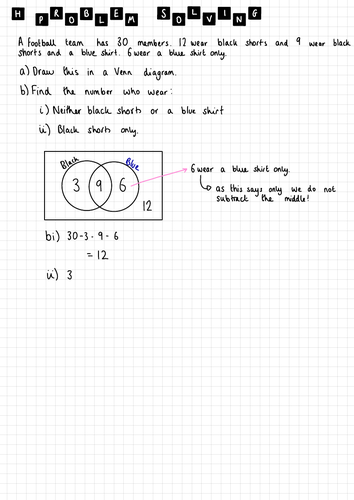 H PROBLEM SOLVING
A football team has 30 members. 12 wear black shorts and 9 wear black
shorts and a blue shirt. 6 wear a blue shirt only.
a) Draw this in a Venn diagram.
b) Find the number who wear:
i) Neither black shorts or a blue shirt
ii) Black shorts only.
Black Blue
3 9 6
12
6 wear a blue shirt only.
as this says only we do not
subtract the middle!
bi) 30 - 3 - 9 - 6
= 12
ii) 3